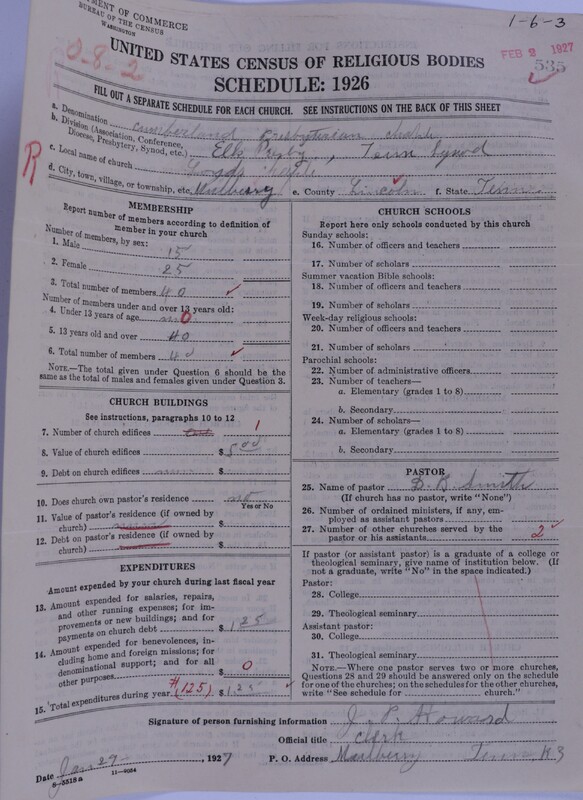 DEPARTMENT OF COMMERCE
BUREAU OF THE CENSUS
WASHINGTON
1-6-3
0-8-2
FEB 2 1927
535
UNITED STATES CENSUS OF RELIGIOUS BODIES
SCHEDULE: 1926
FILL OUT A SEPARATE SCHEDULE FOR EACH CHURCH. SEE INSTRUCTIONS ON THE BACK OF THIS SHEET
a. Denomination Cumberland Presbyterian
b. Division (Association, Conference, Diocese, Presbytery, Synod, etc.) Elk Presby, Tenn Synod
R
c. Local name of church
d. City, town, village, or township, etc. Mulberry e. County Lincoln f. State Tenn
MEMBERSHIP
Report number of members according to definition of member in your church
Number of members, by sex:
1. Male 15
2. Female 25
3. Total number of members 40
Number of members under and over 13 years old:
4. Under 13 years of age 0
5. 13 years old and over 40
6. Total number of members 40
NOTE.—The total given under Question 6 should be the same as the total of males and females given under Question 3.
CHURCH BUILDINGS
See instructions, paragraphs 10 to 12
7. Number of church edifices 1
8. Value of church edifices $ 500
9. Debt on church edifices $
10. Does church own pastor's residence no
Yes or No
11. Value of pastor's residence (if owned by church) $
12. Debt on pastor's residence (if owned by church) $
EXPENDITURES
Amount expended by your church during last fiscal year
13. Amount expended for salaries, repairs, and other running expenses; for improvements or new buildings; and for payments on church debt $ 125
14. Amount expended for benevolences, including home and foreign missions; for denominational support; and for all other purposes $ 0
15. Total expenditures during year #(125) $ 125
CHURCH SCHOOLS
Report here only schools conducted by this church
Sunday schools:
16. Number of officers and teachers
17. Number of scholars
Summer vacation Bible schools:
18. Number of officers and teachers
19. Number of scholars
Week-day religious schools:
20. Number of officers and teachers
21. Number of scholars
Parochial schools:
22. Number of administrative officers
23. Number of teachers—
a. Elementary (grades 1 to 8)
b. Secondary
24. Number of scholars—
a. Elementary (grades 1 to 8)
b. Secondary
PASTOR
25. Name of pastor B. B. Smith
(If church has no pastor, write "None")
26. Number of ordained ministers, if any, employed as assistant pastors
27. Number of other churches served by the pastor or his assistants 2
If pastor (or assistant pastor) is a graduate of a college or theological seminary, give name of institution below. (If not a graduate, write "No" in the space indicated.)
Pastor:
28. College
29. Theological seminary
Assistant pastor:
30. College
31. Theological seminary
NOTE.—Where one pastor serves two or more churches, Questions 28 and 29 should be answered only on the schedule for one of the churches; on the schedules for the other churches, write "See schedule for church."
Signature of person furnishing information J. P. Howard
Official title Clerk
Date Jan 29, 1927 P. O. Address Mulberry Tenn R3
8-5518a 11-9064